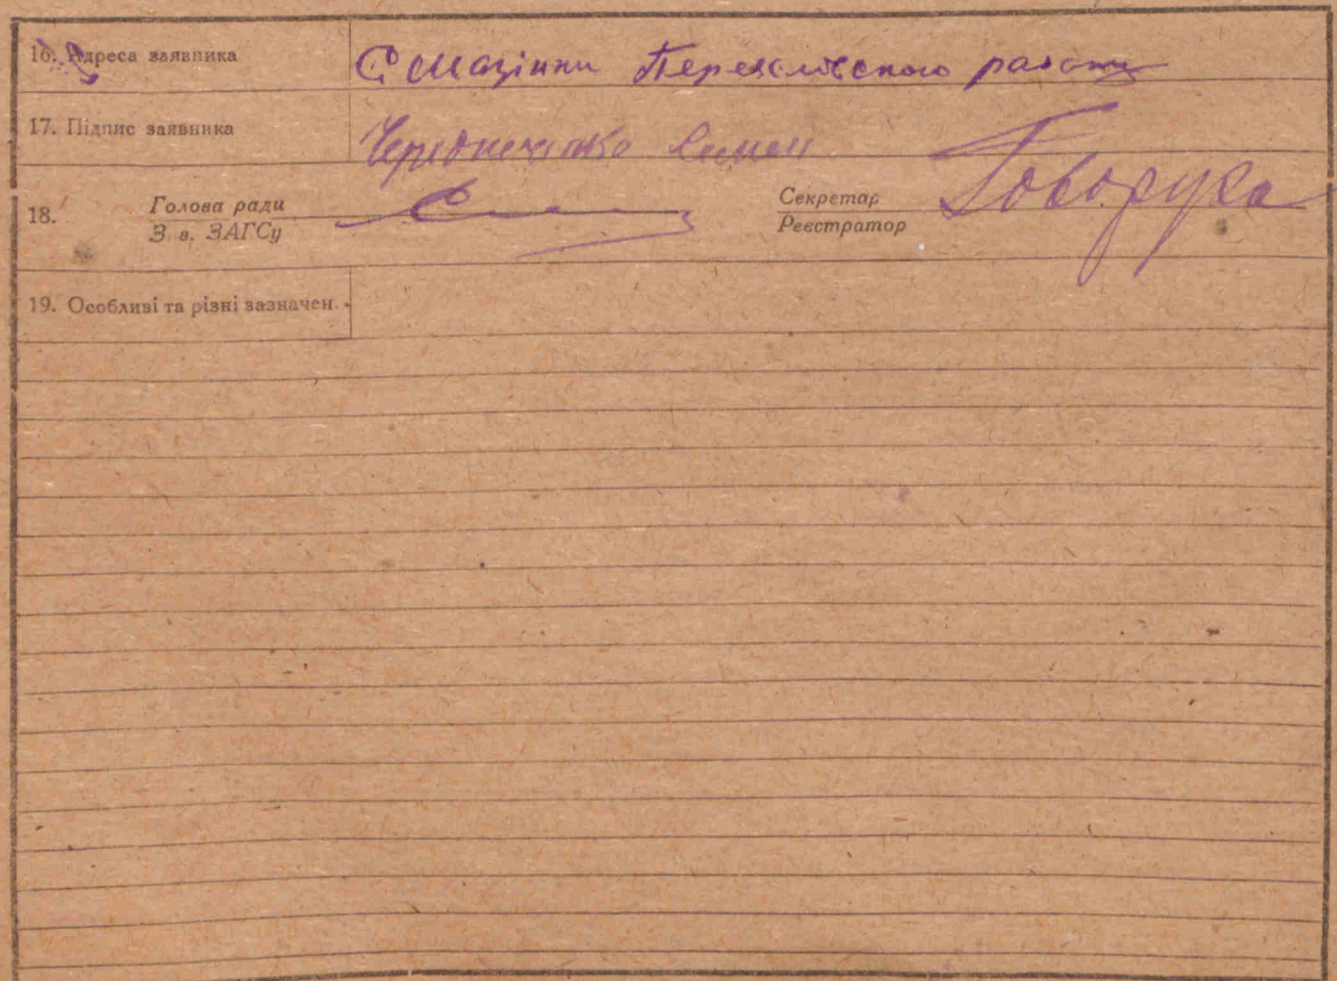 16. Адреса заявника С Мацінки Переяслівського району
17. Підпис заявника Чередниченко Семен
18. Голова ради
З в. ЗАГСу
Секретар Говоруха
Реєстратор
19. Особливі та різні зазначен.